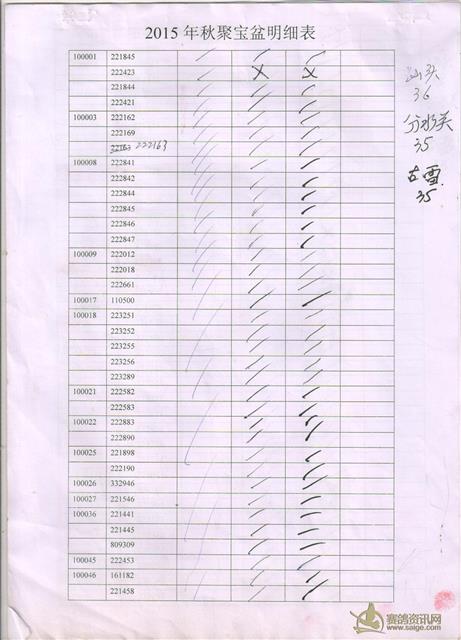 2015 年秋聚宝盆明细表
100001 221845
222423
221844
222421
100003 222162
222169
22163 222163
100008 222841
222842
222844
222845
222846
222847
100009 222012
222018
222661
100017 110500
100018 223251
223252
223255
223256
223289
100021 222582
222583
100022 222883
222890
100025 221898
222190
100026 332946
100027 221546
100036 221441
221445
809309
100045 222453
100046 161182
221458
汕头
36
分水关
35
古雪
35
赛鸽资讯网
www.saige.com